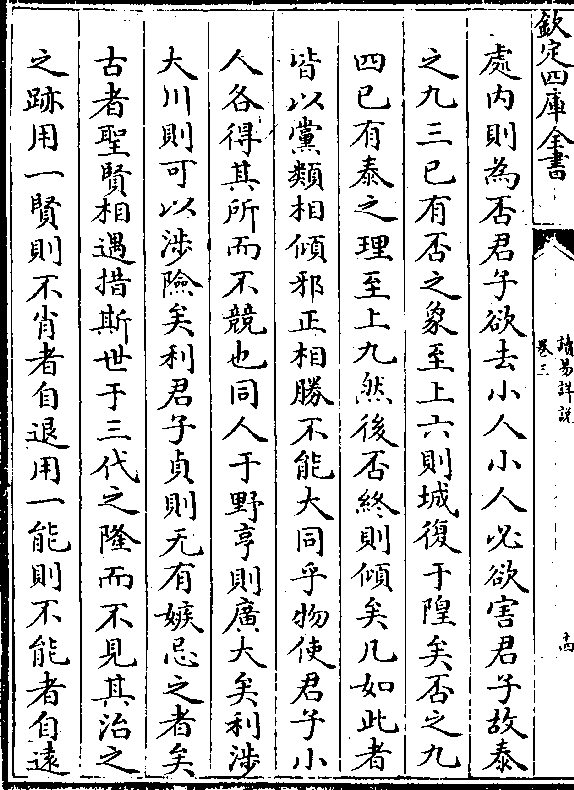 欽定四庫全書
讀易詳說
卷三
十四
處內則為否君子欲去小人小人必欲害君子故泰
之九三已有否之象至上六則城復于隍矣否之九
四已有泰之理至上九然後否終則傾矣凡如此者
皆以黨類相傾邪正相勝不能大同乎物使君子小
人各得其所而不競也同人于野亨則廣大矣利涉
大川則可以涉險矣利君子貞則无有嫉忌之者矣
古者聖賢相遇措斯世于三代之隆而不見其治之
之跡用一賢則不肖者自退用一能則不能者自遠